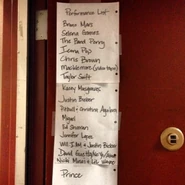 Performance List
Bruno Mars
Selena Gomez
The Band Perry
Icona Pop
Chris Brown
Macklemore
Taylor Swift
Kacey Musgraves
Justin Bieber
Pitbull + Christina Aguilera
Miguel
Ed Sheeran
Jennifer Lopez
Will.I.Am + Justin Bieber
David Guetta
Nicki Minaj + Lil Wayne
Prince